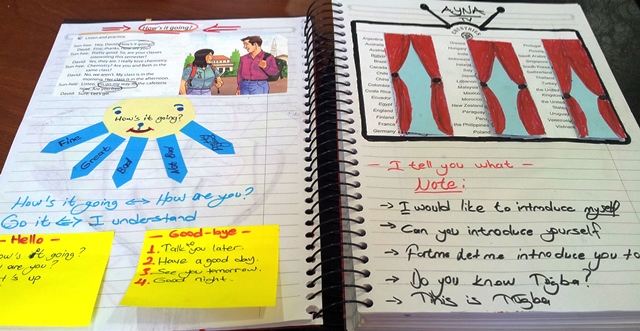 How's it going?
Listen and practice.
Sun-hee: Hey, David. How's it going?
David: Fine, thanks. How are you?
Sun-hee: Pretty good. So, are your classes
interesting this semester?
David: Yes, they are. I really love chemistry.
Sun-hee: Chemistry? Are you and Beth in the
same class?
David: No, we aren't. My class is in the
morning. Her class is in the afternoon.
Sun-hee: Listen, I'm on my way to the cafeteria
now. Are you free?
David: Sure. Let's go.
How's it going?
Fine
Great
Bad
Not Bad
How's it going ↔ How are you?
Go it ↔ I understand
- Hello -
How's it going?
are you?
t's up
- Good-bye -
1. Talk to you later.
2. Have a good day.
3. See you tomorrow.
4. Good night.
AYNA
TV
Argentina
Australia
Austria
Brazil
Cambodia
Canada
Chile
China
Colombia
Costa Rica
Ecuador
Egypt
England
Finland
France
Germany
Greece
Indonesia
Lebanon
Malaysia
Mexico
Morocco
New Zealand
Paraguay
Peru
Poland
Portugal
Russia
Spain
Thailand
Turkey
the United
Kingdom
the United
States
Uruguay
Venezuela
Vietnam
- I tell you what -
Note:
→ I would like to introduce myself
→ Can you introduce yourself
→ let me introduce you to
→ Do you know Tuğba?
→ This is Tuğba